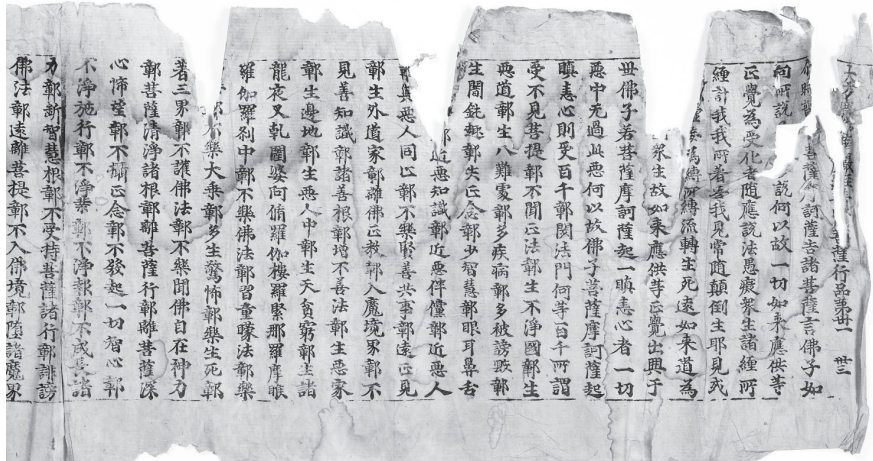 菩薩行品第卅一 卅三
菩薩摩訶薩告諸菩薩言佛子如
向所說 說何以故一切如來應供等
正覺為受化者隨應說法愚癡衆生諸纏所
纏計我我所著吾我見常隨顛倒生耶見或
為縛所縛流轉生死遠如來道為
衆生故如來應供等正覺出興于
世佛子若菩薩摩訶薩起一瞋恚心者一切
惡中无過此惡何以故佛子菩薩摩訶薩起
瞋恚心則受百千鄣閡法門何等百千所謂
受不見菩提鄣不聞正法鄣生不淨國鄣生
惡道鄣生八難處鄣多疾病鄣多被謗毀鄣
生闇鈍趣鄣失正念鄣少智慧鄣眼耳鼻舌
近惡知識鄣近惡伴儻鄣近惡人
與惡人同止鄣不樂賢善共事鄣遠正見
鄣生外道家鄣離佛正教鄣入魔境界鄣不
見善知識鄣諸善根鄣增不善法鄣生惡家
鄣生邊地鄣生惡人中鄣生天貧窮鄣生諸
龍夜叉乹闥婆阿脩羅伽樓羅緊那羅摩睺
羅伽羅剎中鄣不樂佛法鄣習童矇法鄣樂
不樂大乘鄣多生驚怖鄣樂生死鄣
著三界鄣不護佛法鄣不樂聞佛自在神力
鄣菩薩清淨諸根鄣離菩薩行鄣離菩薩深
心悕望鄣不攝正念鄣不發起一切智心鄣
不淨施行鄣不淨業鄣不淨報鄣不成長諸
力鄣斷智慧根鄣不受持菩薩諸行鄣誹謗
佛法鄣遠離菩提鄣不入佛境鄣墮諸魔界